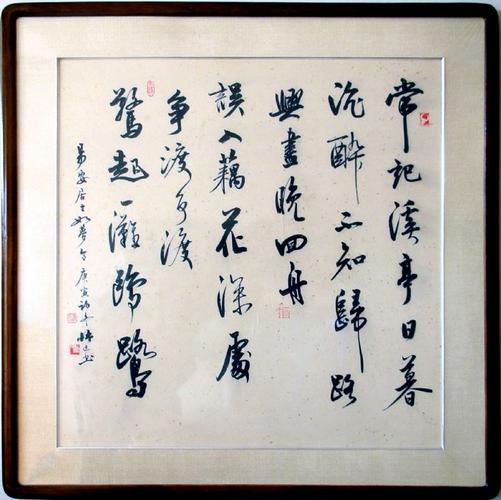 常記溪亭日暮
沉醉不知歸路
興盡晚回舟
誤入藕花深處
爭渡爭渡
驚起一灘鷗鷺
易安居士如夢令庚寅